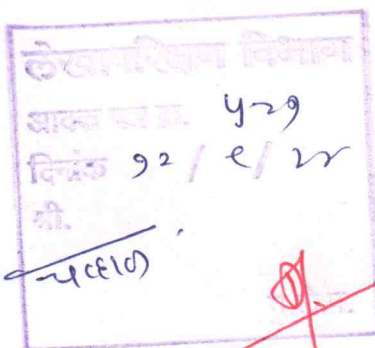 लेखापरिक्षण विभाग
आवक पत्र क्र. ५२१
दिनांक १२ / ९ / २२
श्री.
चव्हाण